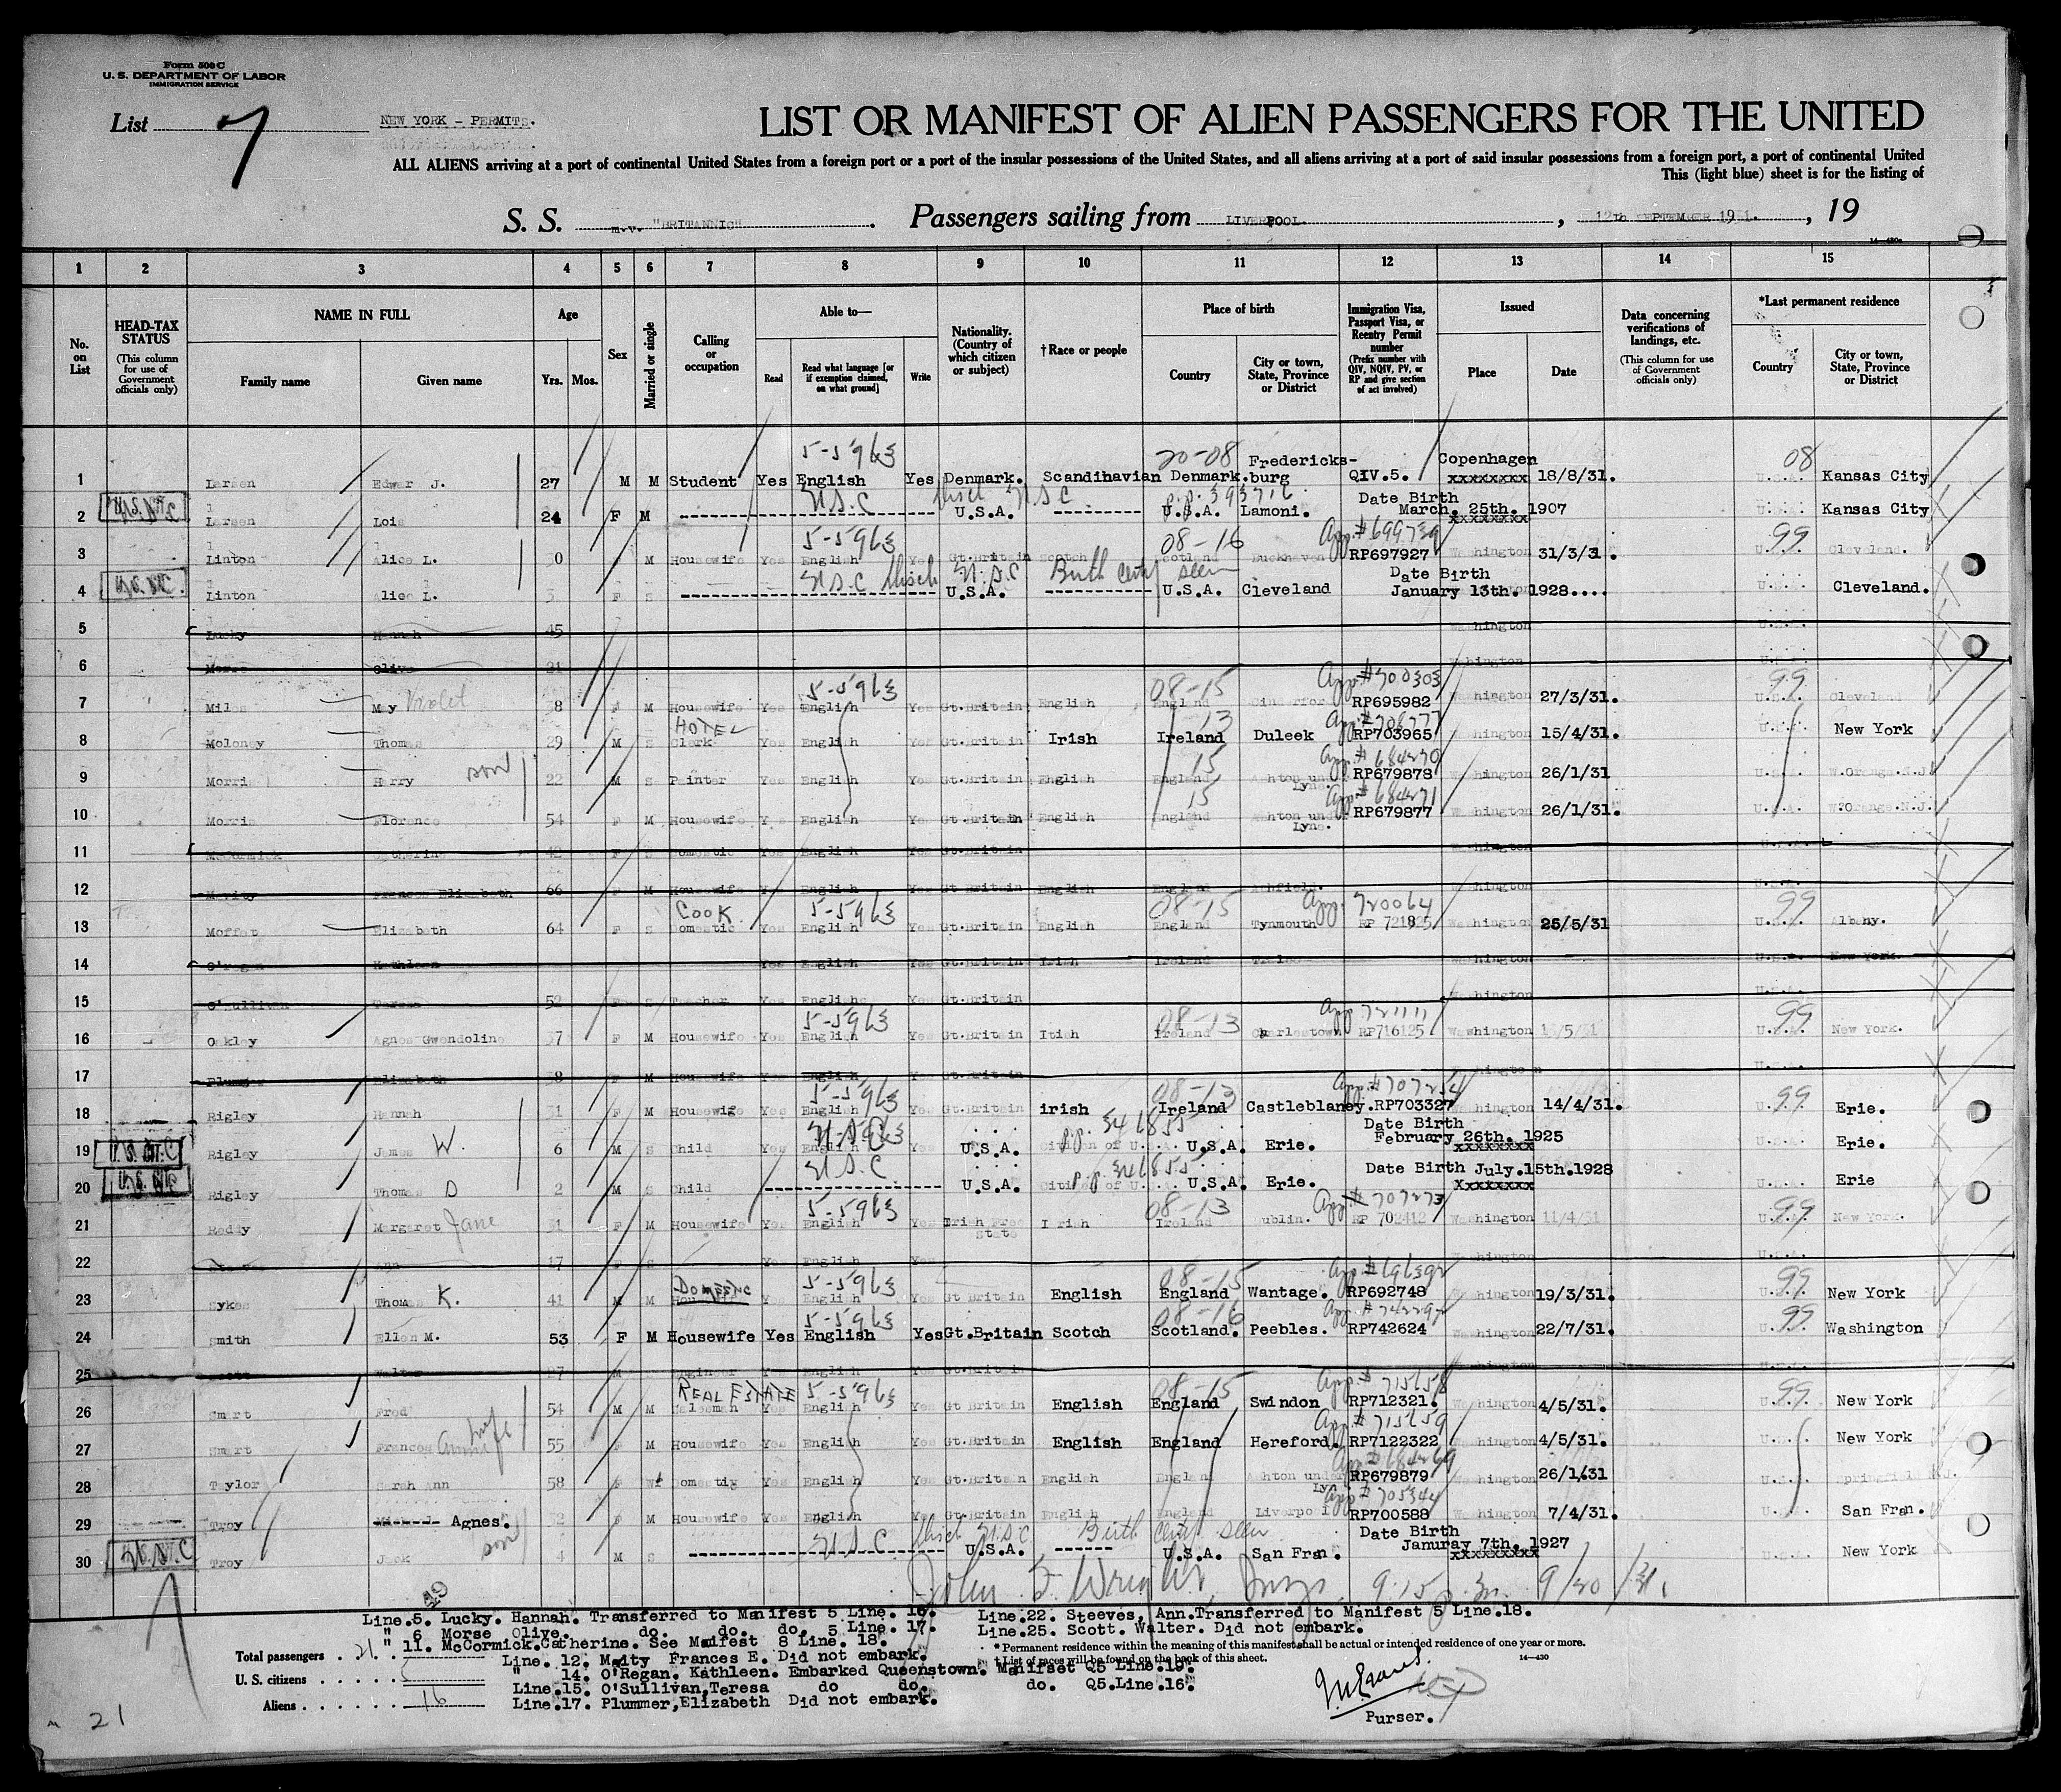 Form 500 C
U. S. DEPARTMENT OF LABOR
IMMIGRATION SERVICE
List 7 NEW YORK - PERMITS.
LIST OR MANIFEST OF ALIEN PASSENGERS FOR THE UNITED
ALL ALIENS arriving at a port of continental United States from a foreign port or a port of the insular possessions of the United States, and all aliens arriving at a port of said insular possessions from a foreign port, a port of continental United
This (light blue) sheet is for the listing of
S. S. m.v. "BRITANNIC". Passengers sailing from LIVERPOOL. , 12th SEPTEMBER 1931. , 19
14-430a
1 2 3 4 5 6 7 8 9 10 11 12 13 14 15
No. on List
HEAD-TAX STATUS (This column for use of Government officials only)
NAME IN FULL Family name Given name
Age Yrs. Mos.
Sex
Married or single
Calling or occupation
Able to— Read Read what language [or if exemption claimed, on what ground] Write
Nationality. (Country of which citizen or subject)
†Race or people
Place of birth Country City or town, State, Province or District
Immigration Visa, Passport Visa, or Reentry Permit number (Prefix number with QIV, NQIV, PV, or RP and give section of act involved)
Issued Place Date
Data concerning verifications of landings, etc. (This column for use of Government officials only)
*Last permanent residence Country City or town, State, Province or District
5-5963 20-08 08
1 Larsen Edwar J. 27 M M Student Yes English Yes Denmark. Scandinavian Denmark. Fredericks-burg QIV.5. Copenhagen xxxxxxxx 18/8/31. U.S.A. Kansas City
2 U.S. CIT. Larsen Lois 24 F M U.S.C U.S.A. p.p. 393716 U.S.A. Lamoni. Date Birth March. 25th. 1907 xxxxxxxx Kansas City
5-5963 08-16 App.# 699739 99
3 Linton Alice L. M Housewife Yes English Yes Gt.Britain Scotch Scotland Buckhaven RP697927 Washington 31/3/3. U.S.A. Cleveland.
4 Linton Alice L. F S U.S.C U.S.C Birth Cert seen U.S.A. U.S.A. Cleveland Date Birth January 13th. 1928.... Cleveland.
5 Lucky Hannah 45 Washington U.S.A.
6 Morse Olive 21
5-5963 08-15 App.# 700303 99
7 Miles May Violet 8 F M Housewife Yes English Yes Gt.Britain English England Cinderford RP695982 Washington 27/3/31. U.S.A. Cleveland
HOTEL 13 App.# 706777
8 Moloney Thomas 29 M S Clerk Yes English Yes Gt.Britain Irish Ireland Duleek RP703965 Washington 15/4/31. New York
son 15 App.# 684270
9 Morris Harry 22 M S Painter Yes English Yes Gt.Britain English England Ashton und Lyne. RP679878 Washington 26/1/31 U.S.A. W.Orange.N.J.
15 App.# 684271
10 Morris Florence 54 F M Housewife Yes English Yes Gt.Britain English England Ashton und Lyne. RP679877 Washington 26/1/31. U.S.A. W.Orange.N.J.
11 McCormick Catherine 42 F S Domestic Yes English Yes Gt.Britain Washington U.S.A.
12 Mavity Frances Elizabeth 66 F M Housewife Yes English Yes Gt Britain English England Ashfield. Washington
COOK 5-5963 08-15 App. 720064 99
13 Moffat Elizabeth 64 F S Domestic Yes English Yes Gt.Britain English England Tynmouth RP 721825 Washington 25/5/31 U.S.A. Albany.
14 O'Regan Kathleen Yes English Yes Gt.Britain Irish Ireland Tralee Washington U.S.A. New York.
15 O'Sullivan Teresa 52 F S Teacher Yes English Yes Gt.Britain Washington
5-5963 08-13 App. 721111 99
16 Oakley Agnes Gwendoline 37 F M Housewife Yes English Yes Gt.Britain Itish Ireland Charlestown RP716125 Washington U.S.A. New York.
17 Plummer Elizabeth 38 F M Housewife Yes English Yes Gt.Britain Washington
5-5963 08-13 App.# 707254 99
18 Rigley Hannah 31 F M Housewife Yes English Yes Gt.Britain irish Ireland Castleblaney. RP703327 Washington 14/4/31. Erie.
19 Rigley James W. 6 M S Child Yes English U.S.A. Citizen of U.S.A. p.p. 346855 U.S.A. Erie. Date Birth February 26th. 1925 xxxxxxxx Erie.
20 Rigley Thomas D 2 M S Child U.S.C. U.S.A. Citizen of U.S.A. p.p. 346855 U.S.A. Erie. Date Birth July.15th.1928 Xxxxxxxx Erie
5-5963 08-13 App.# 707273 99
21 Reddy Margaret Jane 31 F M Housewife Yes English Yes Irish Free State Irish Ireland ublin. RP 702412 Washington 11/4/31 U.S.A. New York.
22 Steeves Ann 17 F S Yes English Yes Washington U.S.A.
DOMESTIC 5-5963 08-15 App.# 696392 99
23 Sykes Thomas K. 41 M M Yes English Yes Gt Britain English England Wantage. RP692748 Washington 19/3/31. New York
5-5963 08-16 App.# 742297 99
24 Smith Ellen M. 53 F M Housewife Yes English Yes Gt.Britain Scotch Scotland. Peebles. RP742624 Washington 22/7/31. Washington
25 Scott Walter 27 M Engineer Yes English Yes Gt.Britain Washington
REAL ESTATE 5-5963 08-15 App.# 715658 99
26 Smart Fred 54 M M Salesman Yes English Yes Gt Britain English England Swindon RP712321. Washington 4/5/31. New York
wife App.# 715659
27 Smart Frances Annie 55 F M Housewife Yes English Yes Gt.Britain English England Hereford. RP7122322 Washington 4/5/31. New York
App.# 684269
28 Taylor Sarah Ann 58 F Wd Domestic Yes English Yes Gt.Britain English England Ashton under Lyn RP679879 Washington 26/1.31 U.S.A. Springfield N.J.
App.# 705344
29 Troy Agnes. 32 F M Housewife Yes English Yes Gt.Britain English England Liverpool RP700588 Washington 7/4/31. San Fran.
30 U.S. CIT. Troy Jack son 4 M S U.S.C U.S.C Birth Cert seen U.S.A. U.S.A. San Fran. Date Birth Januray 7th. 1927 xxxxxxxxx New York
John F. Wright, Insp. 9.15 p.m. 9/20/31.
Line.5. Lucky. Hannah. Transferred to Manifest 5 Line. 16. Line.22. Steeves, Ann.Transferred to Manifest 5 Line.18.
" 6 Morse Olive. do. do. do. 5 Line. 17. Line.25. Scott. Walter. Did not embark.
" 11. McCormick.Catherine. See Manifest 8 Line. 18.
* Permanent residence within the meaning of this manifest shall be actual or intended residence of one year or more.
Total passengers 21
Line. 12. Maity Frances E. Did not embark.
† List of races will be found on the back of this sheet.
14-430
U.S. citizens 5
" 14. O'Regan. Kathleen. Embarked Queenstown. Manifset Q5 Line.19.
Line.15. O'Sullivan,Teresa do do. do. Q5.Line.16.
Aliens 16
Line.17. Plummer,Elizabeth Did not embark.
Purser.
21